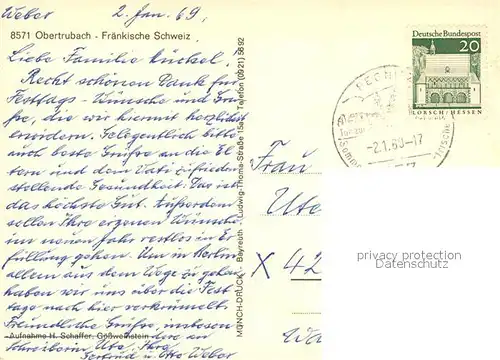 Weber 2. Jan. 69.
8571 Obertrubach - Fränkische Schweiz
Liebe Familie Rückel!
Recht schönen Dank für
Festtags-Wünsche und Grü-
ße, die wir hiermit herzlichst
erwidern. Gelegentlich bitte
auch beste Grüße an die El-
tern und dem Vati zufrieden
stellende Gesundheit. Das ist
das höchste Gut. Außerdem
sollen Ihre eigenen Wünsche
im neuen Jahr restlos in Er-
füllung gehen. Um
allem aus dem Wege zu gehen
haben wir uns über die Fest
tage nach hier verkrümelt.
Freundliche Grüße, insbeson-
dere an
Aufnahme H. Schaffer, Gößweinstein
Schreiberin Ute, Ihre
Gertrud u. Otto Weber
MÜNCH-DRUCK Bayreuth - Ludwig-Thoma-Straße 15a - Telefon (0921) 5692
Deutsche Bundespost
20
LORSCH/HESSEN
PEGNITZ
-2.1.69-17
Frau
Ute
X 42
privacy protection
Datenschutz